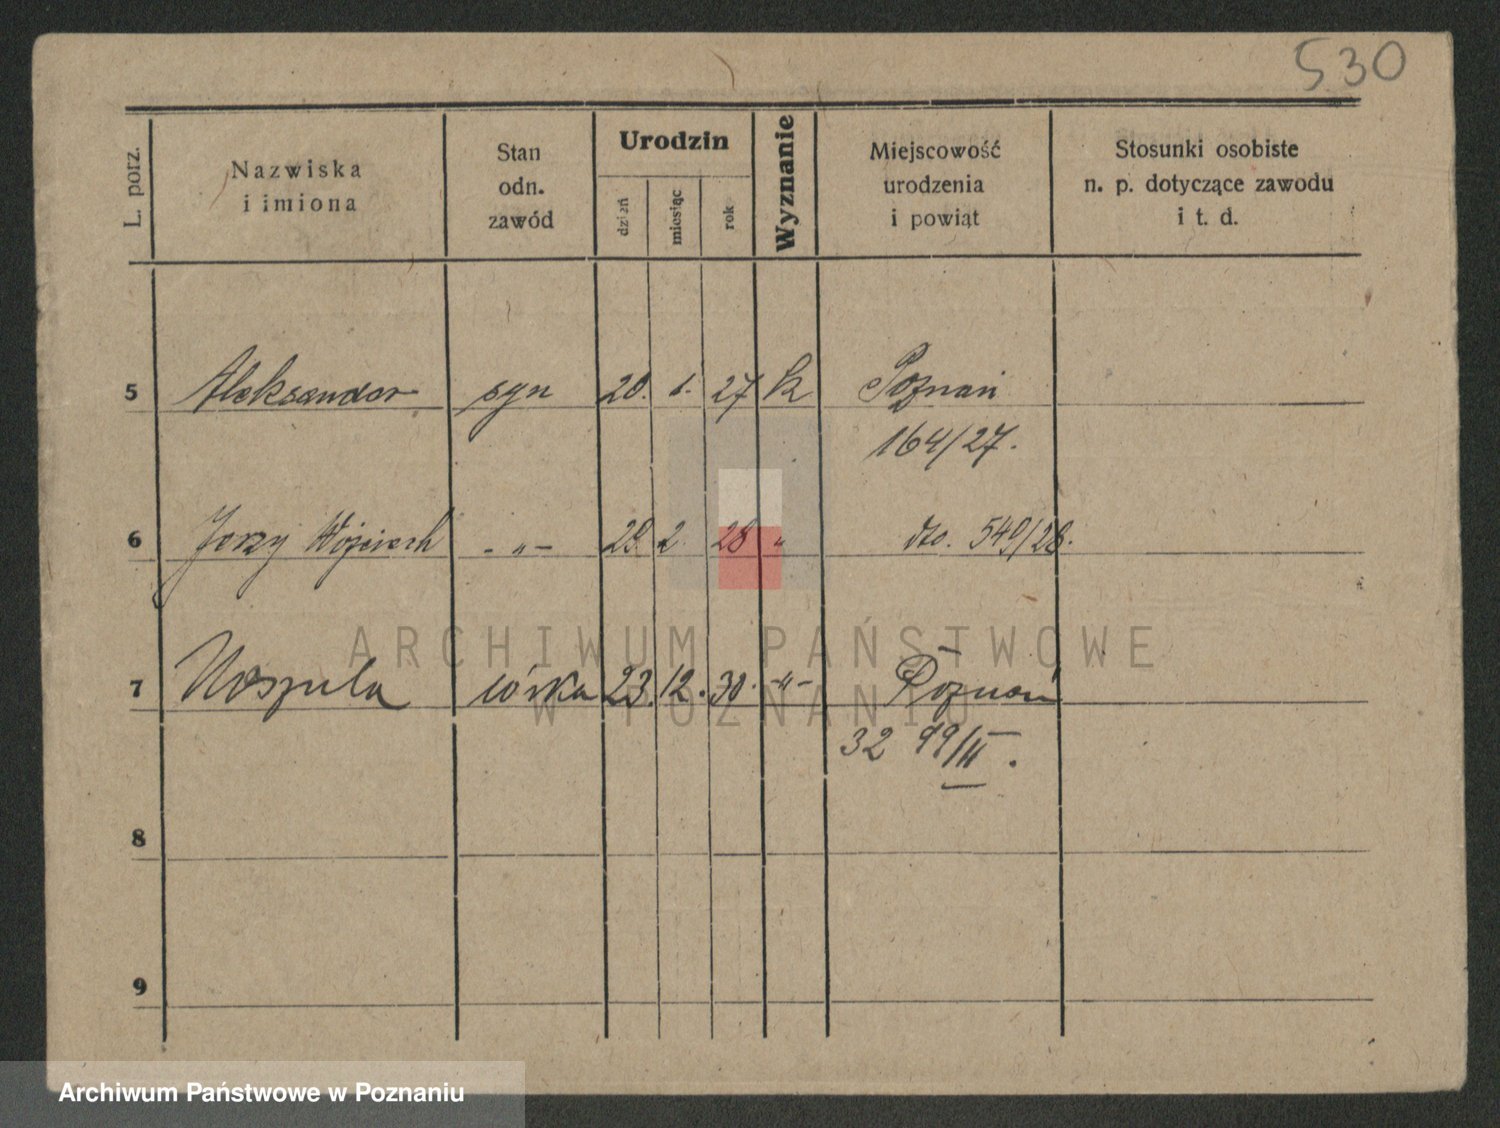 530
L. porz.
Nazwiska
i imiona
Stan
odn.
zawód
Urodzin
dzień
miesiąc
rok
Wyznanie
Miejscowość
urodzenia
i powiąt
Stosunki osobiste
n. p. dotyczące zawodu
i t. d.
5 Aleksander syn 20. 1. 27 k Poznań
164/27.
6 Jerzy Wojciech - „ - 29 2. 28 „ dto. 540/28.
ARCHIWUM PAŃSTWOWE
W POZNANIU
7 Urszula córka 23. 12. 30. -„- Poznań
32 99/II.
8
9
Archiwum Państwowe w Poznaniu